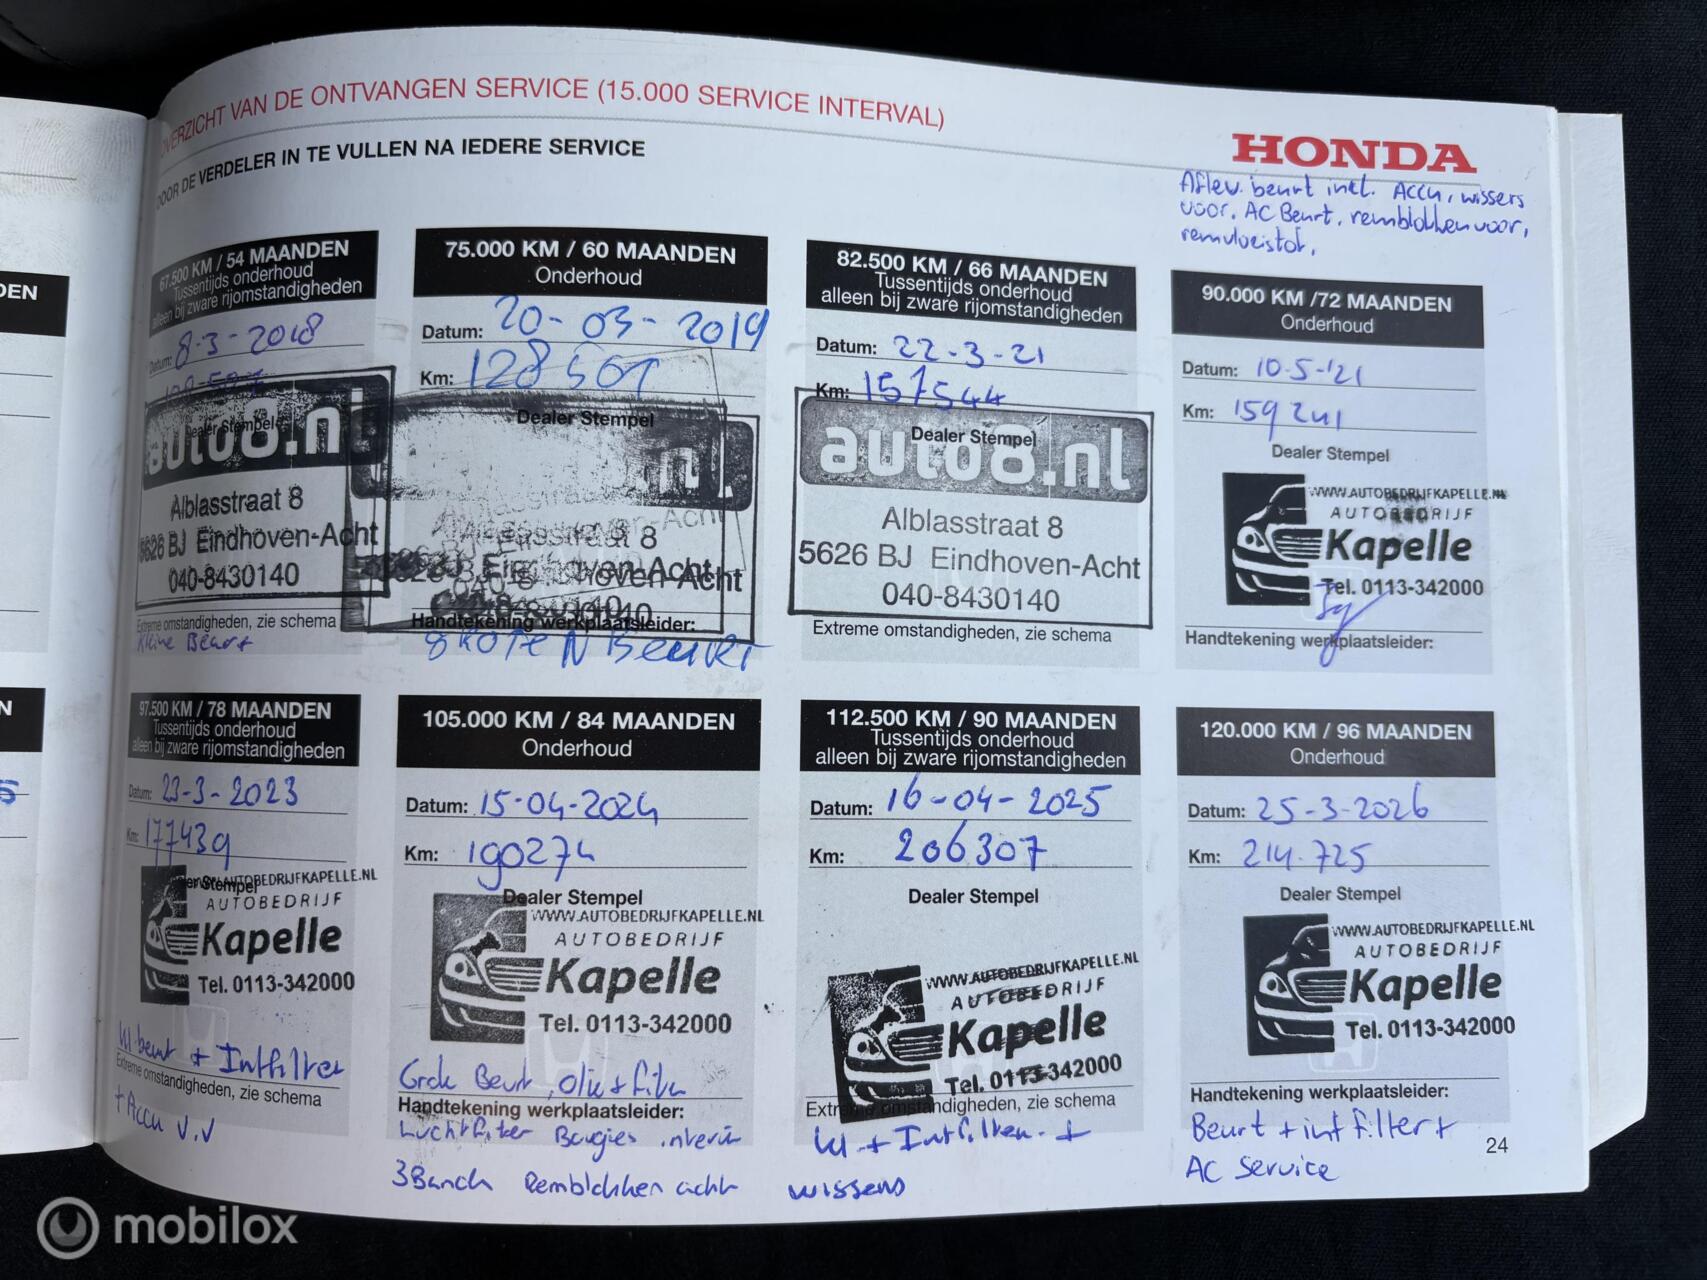 OVERZICHT VAN DE ONTVANGEN SERVICE (15.000 SERVICE INTERVAL)
DOOR DE VERDELER IN TE VULLEN NA IEDERE SERVICE
HONDA
Aflev. beurt incl. Accu, wissers
voor. AC Beurt. remblokken voor,
remvloeistof.
DEN
67.500 KM / 54 MAANDEN
Tussentijds onderhoud
alleen bij zware rijomstandigheden
Datum: 8-3-2018
auto8.nl
Dealer Stempel
Alblasstraat 8
5626 BJ Eindhoven-Acht
040-8430140
Extreme omstandigheden, zie schema
Kleine Beurt
75.000 KM / 60 MAANDEN
Onderhoud
Datum: 20-03-2019
Km:
Dealer Stempel
.nl
Alblasstraat 8
Eindhoven-Acht
040-8430140
Handtekening werkplaatsleider:
GROTE N BEURT
82.500 KM / 66 MAANDEN
Tussentijds onderhoud
alleen bij zware rijomstandigheden
Datum: 22-3-21
Km: 157544
Dealer Stempel
auto8.nl
Alblasstraat 8
5626 BJ Eindhoven-Acht
040-8430140
Extreme omstandigheden, zie schema
90.000 KM /72 MAANDEN
Onderhoud
Datum: 10-5-'21
Km: 159241
Dealer Stempel
WWW.AUTOBEDRIJFKAPELLE.NL
AUTOBEDRIJF
Kapelle
Tel. 0113-342000
Handtekening werkplaatsleider:
N
97.500 KM / 78 MAANDEN
Tussentijds onderhoud
alleen bij zware rijomstandigheden
Datum: 23-3-2023
Km: 177439
Dealer Stempel
WWW.AUTOBEDRIJFKAPELLE.NL
AUTOBEDRIJF
Kapelle
Tel. 0113-342000
Kl beurt + Intfilter
Extreme omstandigheden, zie schema
+ Accu V.V
105.000 KM / 84 MAANDEN
Onderhoud
Datum: 15-04-2024
Km: 190274
Dealer Stempel
WWW.AUTOBEDRIJFKAPELLE.NL
AUTOBEDRIJF
Kapelle
Tel. 0113-342000
Grote Beurt, olie + filter
Handtekening werkplaatsleider:
Luchtfilter Bougies interieur
Remblokken achter
112.500 KM / 90 MAANDEN
Tussentijds onderhoud
alleen bij zware rijomstandigheden
Datum: 16-04-2025
Km: 206307
Dealer Stempel
WWW.AUTOBEDRIJFKAPELLE.NL
AUTOBEDRIJF
Kapelle
Tel. 0113-342000
Extreme omstandigheden, zie schema
Kl + Intfilter. +
wissers
120.000 KM / 96 MAANDEN
Onderhoud
Datum: 25-3-2026
Km: 214.725
Dealer Stempel
WWW.AUTOBEDRIJFKAPELLE.NL
AUTOBEDRIJF
Kapelle
Tel. 0113-342000
Handtekening werkplaatsleider:
Beurt + intfilter +
AC Service
24
mobilox